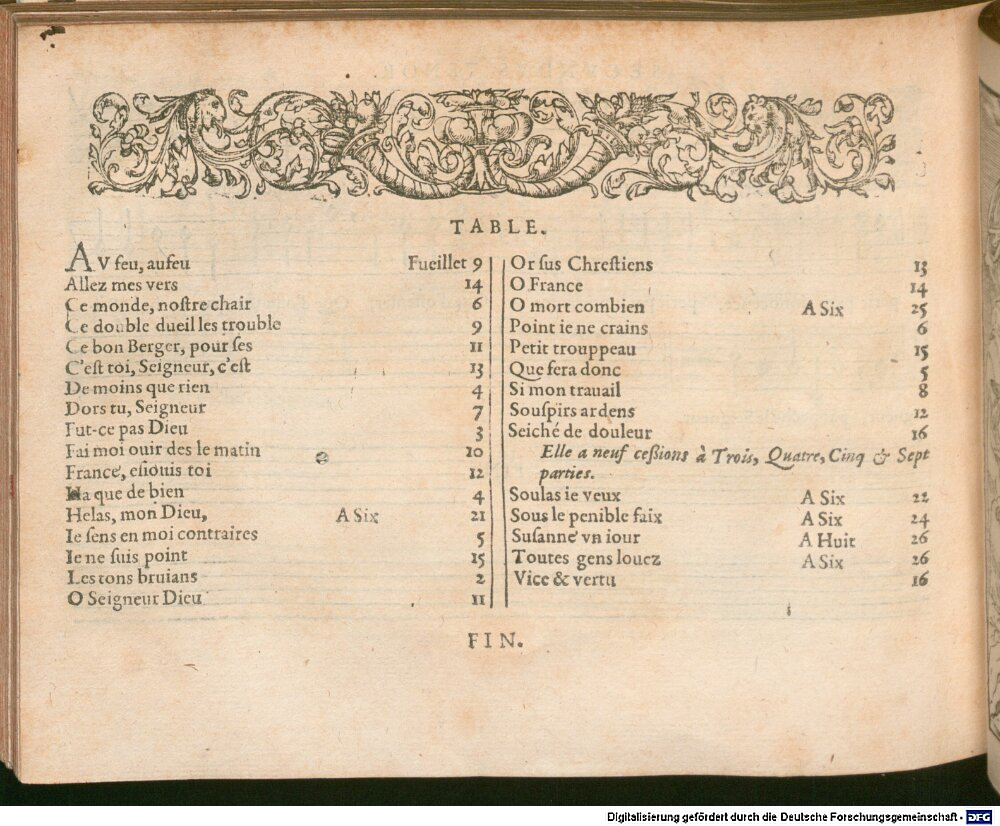 TABLE.
AV feu, aufeu Fueillet 9
Allez mes vers 14
Ce monde, noſtre chair 6
Ce double dueil les trouble 9
Ce bon Berger, pour ſes 11
C'eſt toi, Seigneur, c'eſt 13
De moins que rien 4
Dors tu, Seigneur 7
Fut-ce pas Dieu 3
Fai moi ouir des le matin 10
France, eſiouis toi 12
Ha que de bien 4
Helas, mon Dieu, A Six 21
Ie ſens en moi contraires 5
Ie ne ſuis point 15
Les tons bruians 2
O Seigneur Dieu 11
Or ſus Chreſtiens 13
O France 14
O mort combien A Six 25
Point ie ne crains 6
Petit trouppeau 15
Que fera donc 5
Si mon trauail 8
Souſpirs ardens 12
Seiché de douleur 16
Elle a neuf ceſsions à Trois, Quatre, Cinq & Sept
parties.
Soulas ie veux A Six 22
Sous le penible faix A Six 24
Suſanne vn iour A Huit 26
Toutes gens louez A Six 26
Vice & vertu 16
FIN.
Digitalisierung gefördert durch die Deutsche Forschungsgemeinschaft - DFG